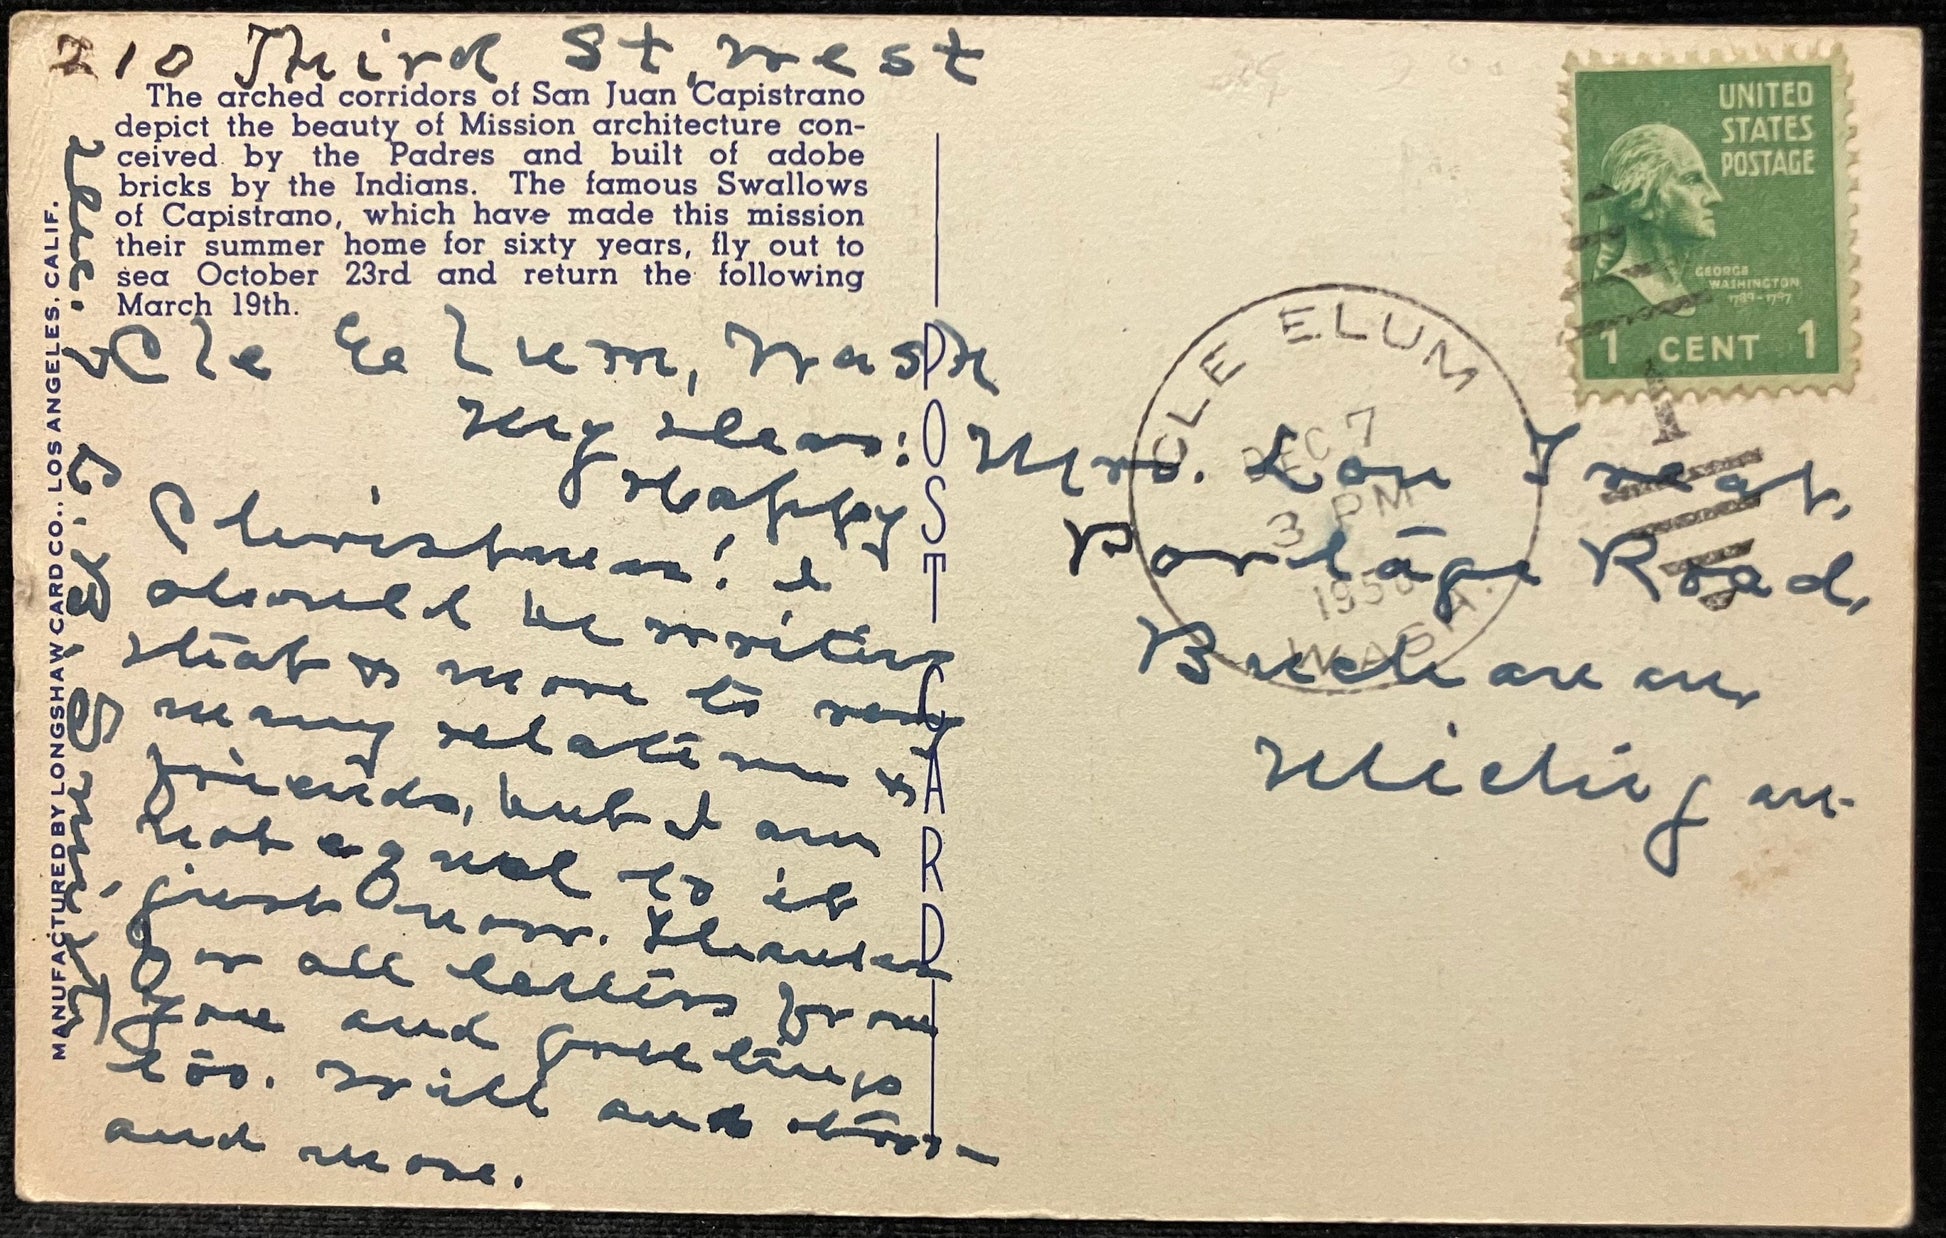 210 Third St, West
The arched corridors of San Juan Capistrano
depict the beauty of Mission architecture con-
ceived by the Padres and built of adobe
bricks by the Indians. The famous Swallows
of Capistrano, which have made this mission
their summer home for sixty years, fly out to
sea October 23rd and return the following
March 19th.
Cle Elum, Wash
My dear:
Happy
Christmas! I
should be writing
that & more to very
many relatives &
friends, but I am
not equal to it
just now. Thanks
for all letters from
you and greetings
too. Will and
and more.
Dec. 7
Smith
MANUFACTURED BY LONGSHAW CARD CO., LOS ANGELES, CALIF.
POST CARD
UNITED
STATES
POSTAGE
GEORGE
WASHINGTON
1789-1797
1 CENT 1
CLE ELUM
DEC 7
3 PM
WASH.
1
Mrs. Lou Treat,
Portage Road,
Buchanan,
Michigan.